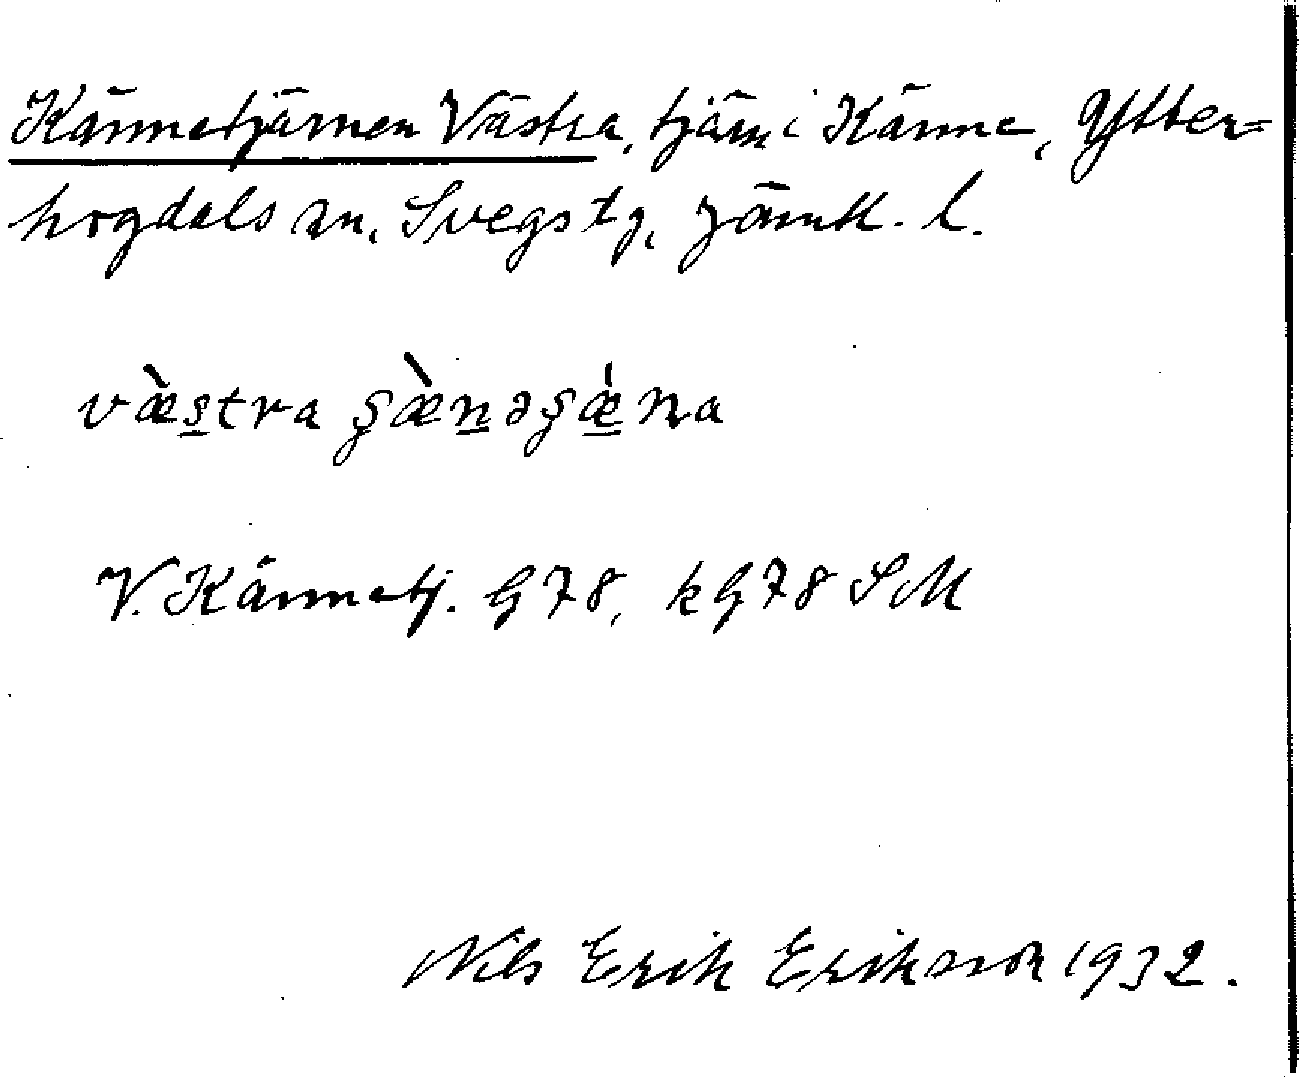 Kännetjärnen Västra, tjärn i Känne, Ytter-
hogdals sn, Svegs tg, Jämtl. l.
væ̀s̲tra ʂæ̀n̲əʂǽ̲na
V. Kännetj. G 78, kG 78 SM
Nils Erik Eriksson 1932.